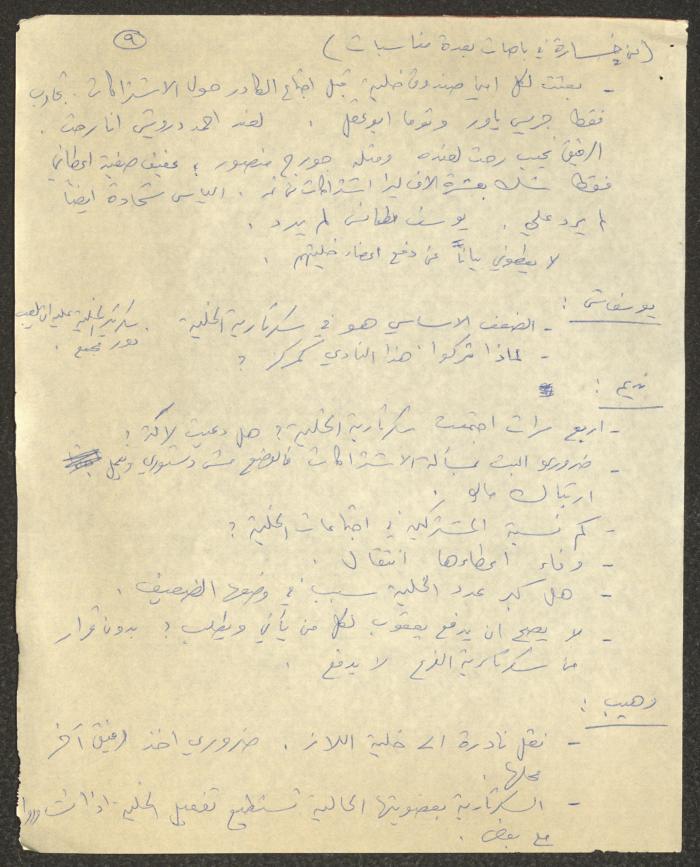 ٩
(من خسارة في باصات بعدة مناسبات)
- بعثت لكل امين صندوق خلية قبل اجتماع الكادر حول الاشتراكات. تجاوب
فقط جريس ياور وتوما ابوعقل. لعند احمد درويش انا رحت.
الرفيق نجيب رحت لعنده ومثله جورج منصور، عفيف صفية اعطاني
فقط شك بعشرة الاف ليرا اشتراكات. الياس شحادة ايضاً
لم يرد علي. يوسف لم يرد.
لا يعطوني بياناً عن دفع اعضاء خليتهم.
يوسف :
- الضعف الاساسي هو في سكرتارية الخلية. سكرتير الخلية عليه ان يلعب
دور
- لماذا تتركوا هذا النادي كمركز؟
نديم :
- اربع مرات اجتمعت سكرتارية الخلية؟ هل دعيت لاكثر؟
- ضروري البت بمسألة الاشتراكات فالوضع مش دستوري ويعمل
ارتباك مالي.
- كم نسبة المشتركين في اجتماعات الخلية؟
- وفاء اعطاءها انتقال.
- هل كبر عدد الخلية سبب في وضعها الضعيف.
- لا يصح ان يدفع يعقوب لكل من يأتي ويطلب؟ بدون قرار
من سكرتارية الفرع لا يدفع.
وهيب :
- نقل نادرة الى خلية اللاز. ضروري اخذ رفيق آخر
محلها.
- السكرتارية بعضويتها الحالية تستطيع تفعيل الخلية اذا
مع بعض.